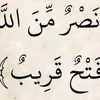 نَصْرٌ مِّنَ اللَّ
فَتْحٌ قَرِيبٌ ﴾